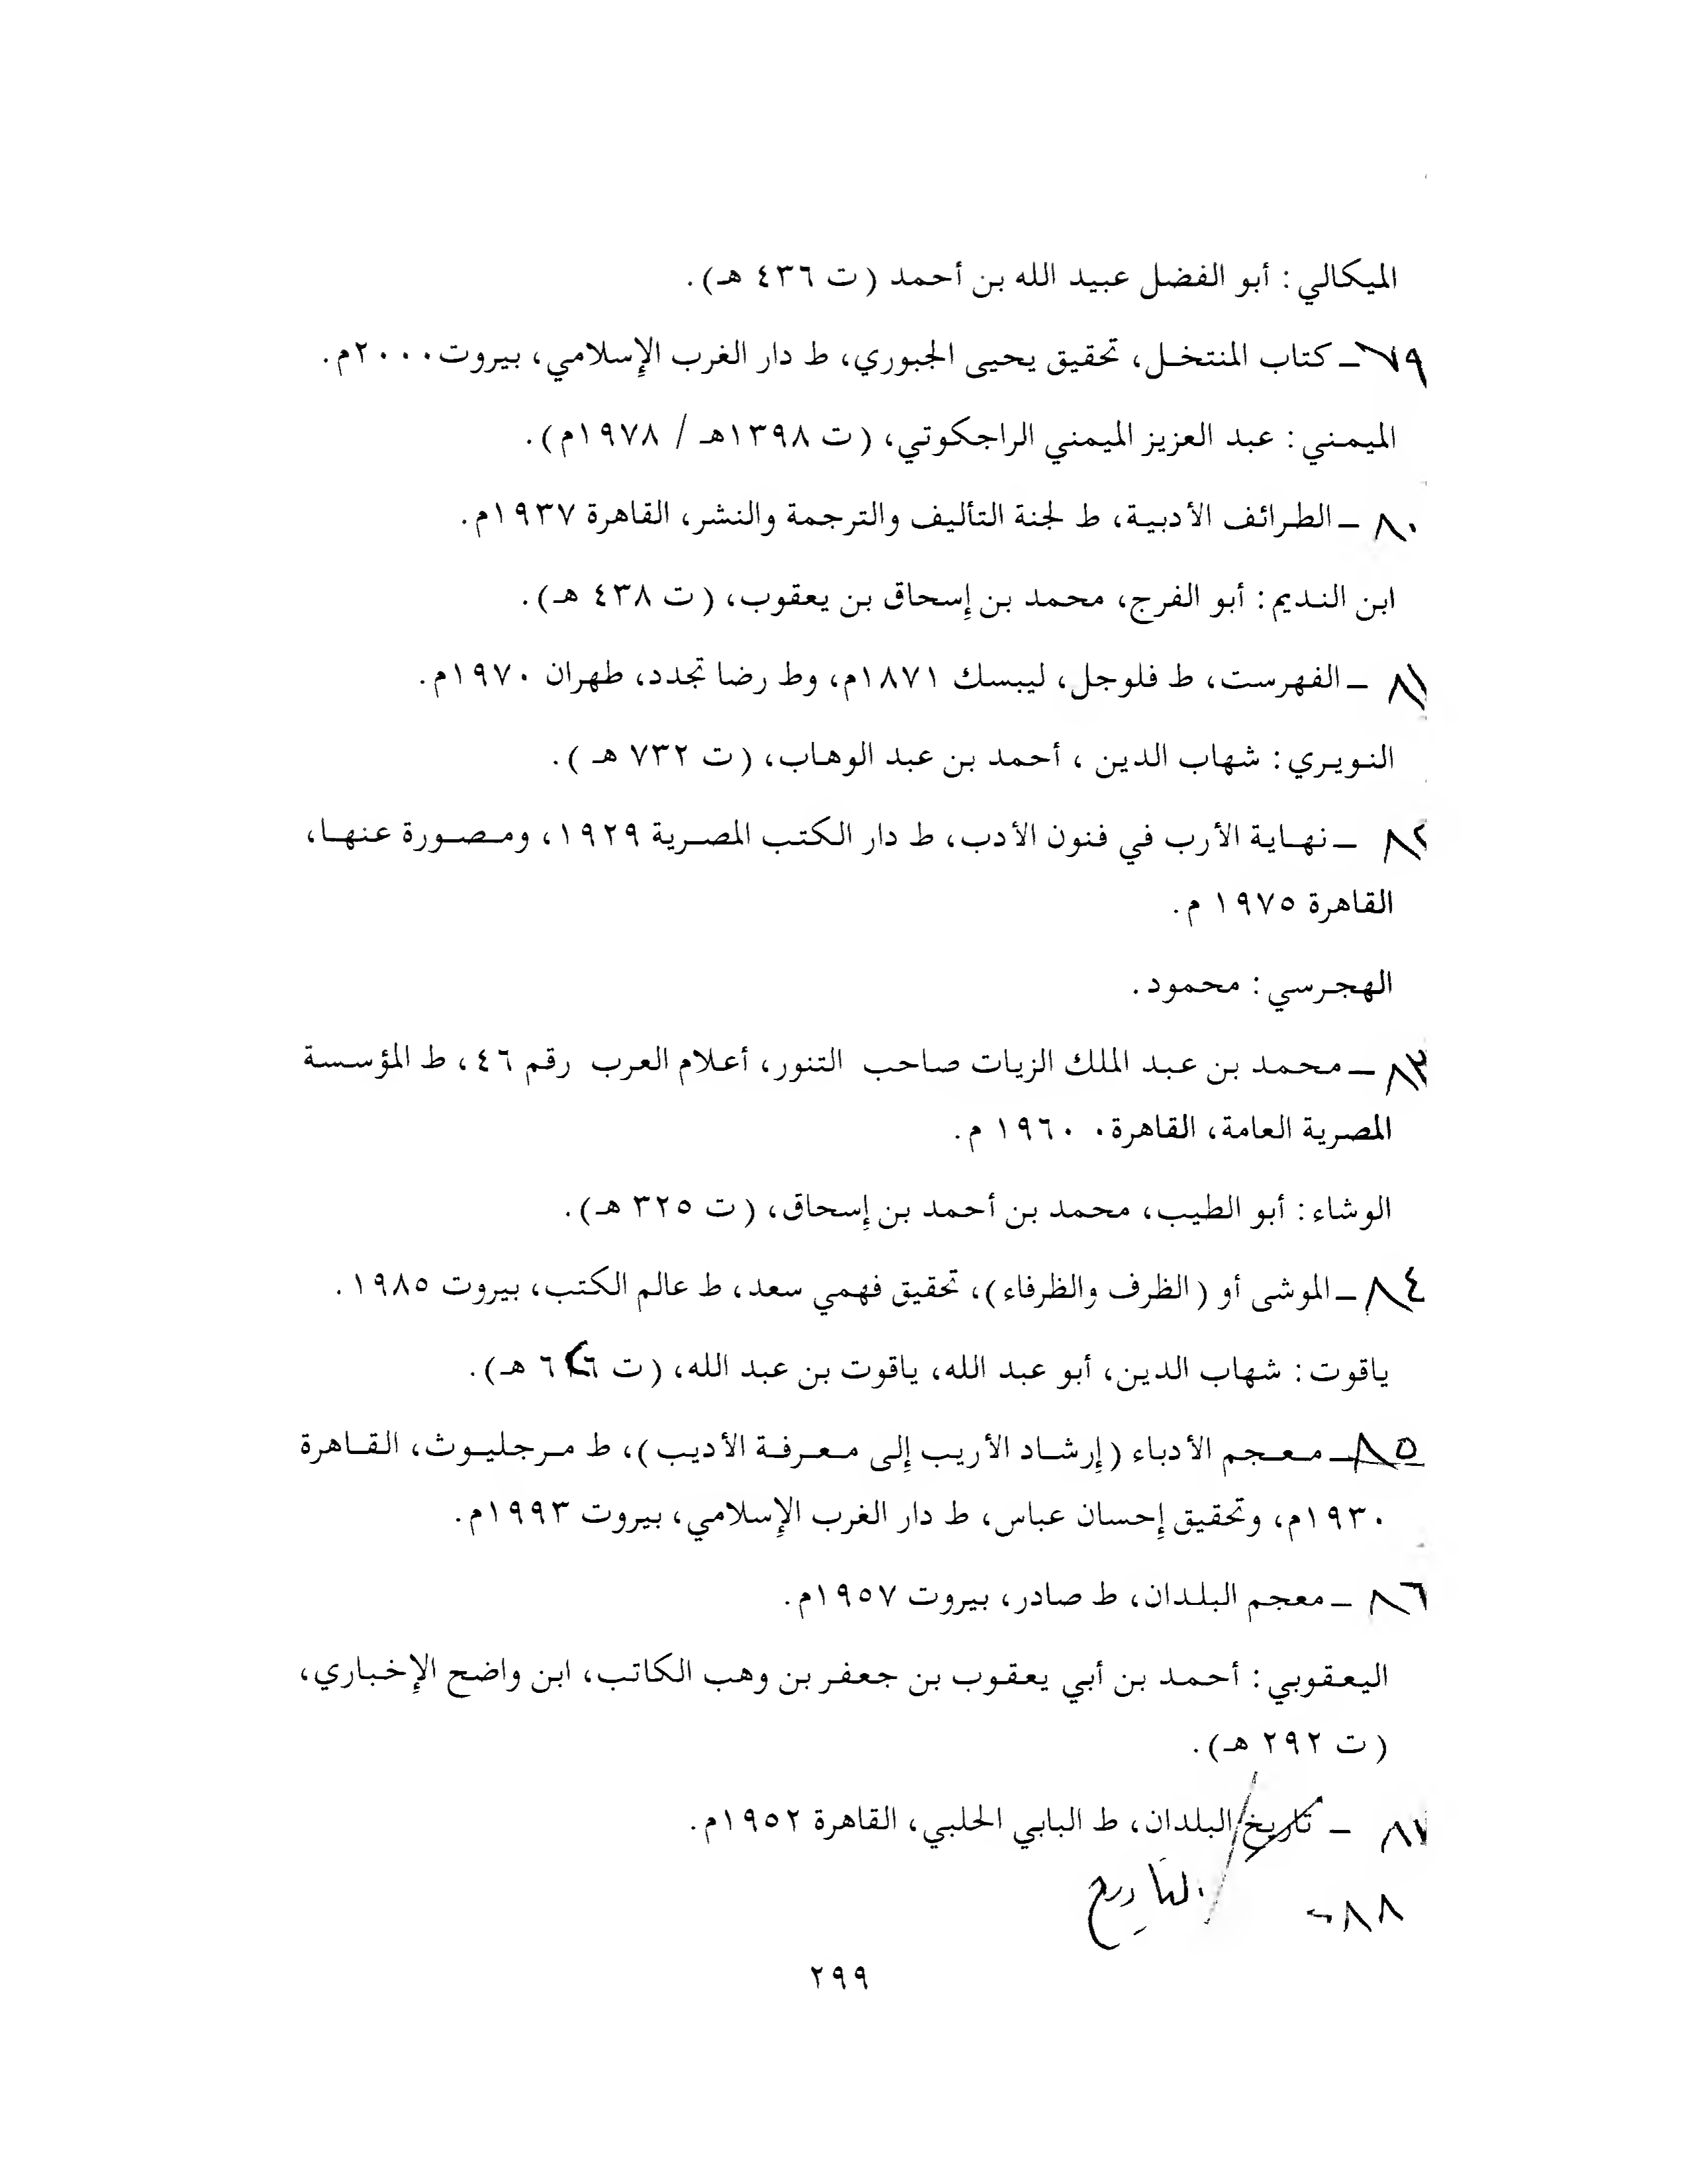 الميكالي: أبو الفضل عبيد الله بن أحمد (ت ٤٣٦ هـ).
٧٩ ـ كتاب المنتخـل، تحقيق يحيى الجبوري، ط دار الغرب الإسلامي، بيروت ٢٠٠٠م.
الميمني: عبد العزيز الميمني الراجكوتي، (ت ١٣٩٨هـ / ١٩٧٨م).
٨٠ ـ الطرائف الأدبية، ط لجنة التأليف والترجمة والنشر، القاهرة ١٩٣٧م.
ابن النديم: أبو الفرج، محمد بن إسحاق بن يعقوب، (ت ٤٣٨ هـ).
٨١ ـ الفهرست، ط فلوجل، ليبسك ١٨٧١م، وط رضا تجدد، طهران ١٩٧٠م.
النويري: شهاب الدين ، أحمد بن عبد الوهاب، (ت ٧٣٢ هـ ).
٨٢ ـ نهاية الأرب في فنون الأدب، ط دار الكتب المصرية ١٩٢٩، ومصورة عنها،
القاهرة ١٩٧٥ م.
الهجرسي: محمود.
٨٣ ـ محمد بن عبد الملك الزيات صاحب التنور، أعلام العرب رقم ٤٦، ط المؤسسة
المصرية العامة، القاهرة ١٩٦٠٠ م.
الوشاء: أبو الطيب، محمد بن أحمد بن إسحاق، (ت ٣٢٥ هـ).
٨٤ ـ الموشى أو (الظرف والظرفاء)، تحقيق فهمي سعد، ط عالم الكتب، بيروت ١٩٨٥.
ياقوت: شهاب الدين، أبو عبد الله، ياقوت بن عبد الله، (ت ٦٢٦ هـ).
٨٥ ـ معجم الأدباء (إرشاد الأريب إلى معرفة الأديب)، ط مرجليوث، القاهرة
١٩٣٠م، وتحقيق إحسان عباس، ط دار الغرب الإسلامي، بيروت ١٩٩٣م.
٨٦ ـ معجم البلدان، ط صادر، بيروت ١٩٥٧م.
اليعقوبي: أحمد بن أبي يعقوب بن جعفر بن وهب الكاتب، ابن واضح الإخباري،
(ت ٢٩٢ هـ).
٨٧ ـ تاريخ البلدان، ط البابي الحلبي، القاهرة ١٩٥٢م.
٨٨ - التاريخ
٢٩٩